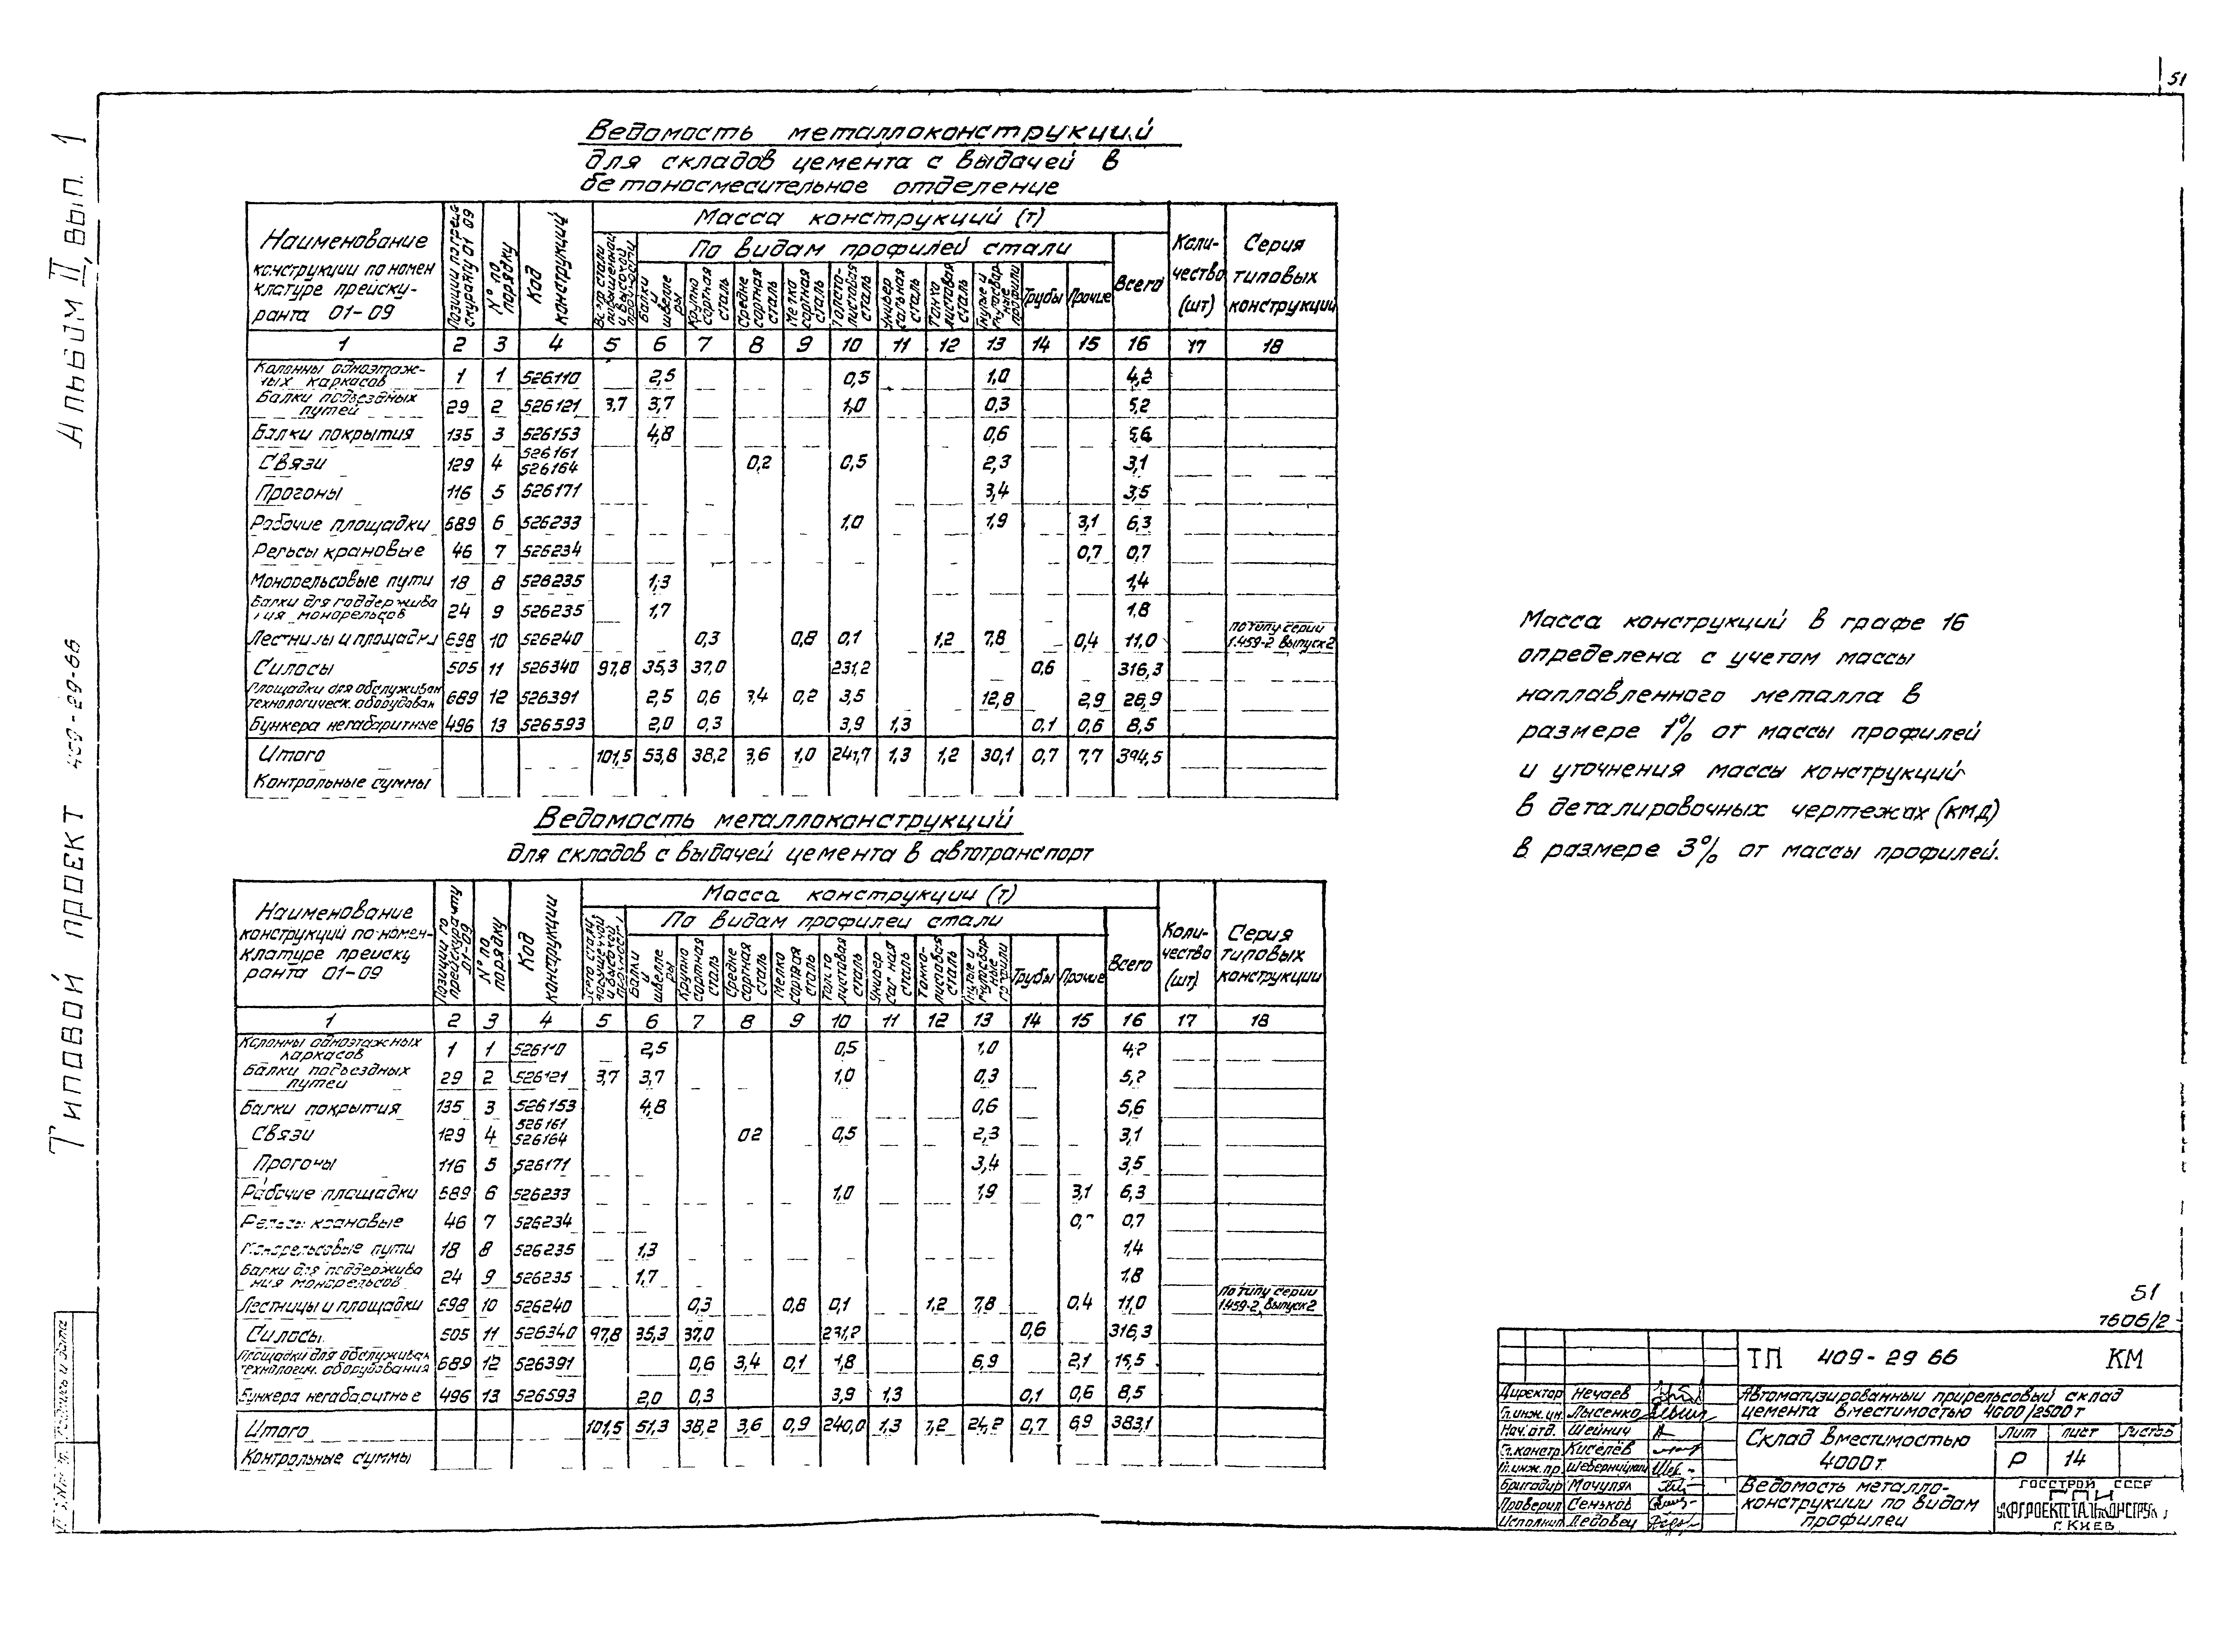 51
Альбом II, вып. 1
Типовой проект 409-29-66
Ведомость металлоконструкций
для складов цемента с выдачей в
бетоносмесительное отделение
Наименование конструкции по номенклатуре прейскуранта 01-09
Позиции по прейскуранту 01 09
№ по порядку
Код конструкций
Масса конструкций (т)
По видам профилей стали
Балки и швеллеры
Крупносортная сталь
Среднесортная сталь
Мелкосортная сталь
Толстолистовая сталь
Универсальная сталь
Тонколистовая сталь
Гнутые и гнутосварные профили
Трубы
Прочие
Всего
Количество (шт)
Серия типовых конструкций
1 2 3 4 5 6 7 8 9 10 11 12 13 14 15 16 17 18
Колонны одноэтажных каркасов 1 1 526110 2,5 0,5 1,0 4,2
Балки подъездных путей 29 2 526121 3,7 3,7 1,0 0,3 5,2
Балки покрытия 135 3 526153 4,8 0,6 5,6
Связи 129 4 526161 526164 0,2 0,5 2,3 3,1
Прогоны 116 5 526171 3,4 3,5
Рабочие площадки 689 6 526233 1,0 1,9 3,1 6,3
Рельсы крановые 46 7 526234 0,7 0,7
Монорельсовые пути 18 8 526235 1,3 1,4
Балки для поддержива ния монорельсов 24 9 526235 1,7 1,8
Лестницы и площадки 698 10 526240 0,3 0,8 0,1 1,2 7,8 0,4 11,0 по типу серии 1.459-2 выпуск 2
Силосы 505 11 526340 97,8 35,3 37,0 231,2 0,6 316,3
Площадки для обслуживан технологическ. оборудован 689 12 526391 2,5 0,6 3,4 0,2 3,5 12,8 2,9 26,9
Бункера негабаритные 496 13 526593 2,0 0,3 3,9 1,3 0,1 0,6 8,5
Итого 101,5 53,8 38,2 3,6 1,0 241,7 1,3 1,2 30,1 0,7 7,7 394,5
Контрольные суммы
Масса конструкций в графе 16
определена с учетом массы
наплавленного металла в
размере 1% от массы профилей
и уточнения массы конструкций
в деталировочных чертежах (КМД)
в размере 3% от массы профилей.
Ведомость металлоконструкций
для складов с выдачей цемента в автотранспорт
Наименование конструкций по номенклатуре прейскуранта 01-09
Позиции по прейскуранту 01-09
№ по порядку
Код конструкции
Масса конструкции (т)
По видам профилей стали
Балки и швеллеры
Крупносортная сталь
Среднесортная сталь
Мелкосортная сталь
Толстолистовая сталь
Универсальная сталь
Тонколистовая сталь
Гнутые и гнутосварные профили
Трубы
Прочие
Всего
Количество (шт)
Серия типовых конструкции
1 2 3 4 5 6 7 8 9 10 11 12 13 14 15 16 17 18
Колонны одноэтажных каркасов 1 1 526110 2,5 0,5 1,0 4,2
Балки подъездных путей 29 2 526121 3,7 3,7 1,0 0,3 5,2
Балки покрытия 135 3 526153 4,8 0,6 5,6
Связи 129 4 526161 526164 02 0,5 2,3 3,1
Прогоны 116 5 526171 3,4 3,5
Рабочие площадки 689 6 526233 1,0 1,9 3,1 6,3
Рельсы крановые 46 7 526234 0,7
Монорельсовые пути 18 8 526235 1,3 1,4
Балки для поддержива ния монорельсов 24 9 526235 1,7 1,8
Лестницы и площадки 698 10 526240 0,3 0,8 0,1 1,2 7,8 0,4 11,0 по типу серии 1.459-2, выпуск 2
Силосы 505 11 526340 97,8 35,3 37,0 231,2 0,6 316,3
Площадки для обслуживан технологич. оборудования 689 12 526391 0,6 3,4 0,1 1,8 6,9 2,1 15,5
Бункера негабаритные 496 13 526593 2,0 0,3 3,9 1,3 0,1 0,6 8,5
Итого 101,5 51,3 38,2 3,6 0,9 240,0 1,3 1,2 24,2 0,7 6,9 383,1
Контрольные суммы
51
7606/2
ТП 409-29 66 КМ
Директор Нечаев
Гл.инж.ин. Лысенко
Нач. отд. Шейнич
Гл.констр Киселёв
Гл.инж.пр.
Бригадир Мачуляк
Проверил Сеньков
Исполнил Ледовец
Автоматизированный прирельсовый склад
цемента вместимостью 4000/2500т
Склад вместимостью
4000т.
Лит Лист Листов
Р 14
Ведомость металло-
конструкции по видам
профилей
ГОССТРОЙ СССР
ГПИ
УКРПРОЕКТСТАЛЬКОНСТРУКЦИЯ
г. КИЕВ
Подпись и дата